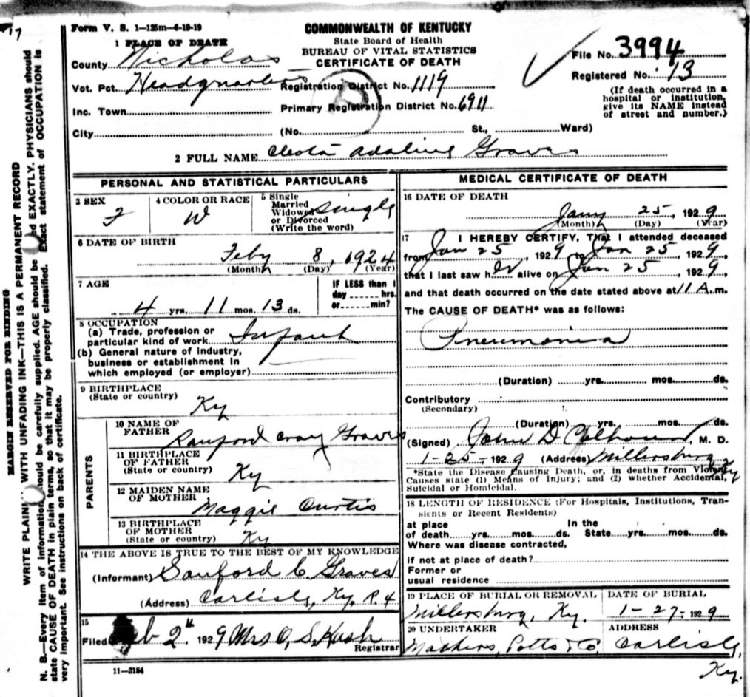 17
Form V. S. 1-125m-4-19-19
COMMONWEALTH OF KENTUCKY
State Board of Health
BUREAU OF VITAL STATISTICS
CERTIFICATE OF DEATH
1 PLACE OF DEATH
County Nicholas
Vot. Pct. Headquarters
Inc. Town
City
Registration District No. 1119
Primary Registration District No. 6911
(No. St., Ward)
File No. 3994
Registered No. 13
(If death occurred in a
hospital or institution,
give its NAME instead
of street and number.)
2 FULL NAME Cleota Adaline Graves
PERSONAL AND STATISTICAL PARTICULARS
3 SEX F
4 COLOR OR RACE W
5 Single
Married
Widowed
or Divorced
(Write the word) Single
6 DATE OF BIRTH
Feby 8, 1924
(Month) (Day) (Year)
7 AGE
4 yrs. 11 mos. 13 ds.
IF LESS than 1
day hrs.
or min?
8 OCCUPATION
(a) Trade, profession or
particular kind of work Infant
(b) General nature of industry,
business or establishment in
which employed (or employer)
9 BIRTHPLACE
(State or country) Ky
PARENTS
10 NAME OF
FATHER Sanford Cray Graves
11 BIRTHPLACE
OF FATHER
(State or country) Ky
12 MAIDEN NAME
OF MOTHER Maggie Curtis
13 BIRTHPLACE
OF MOTHER
(State or country) Ky
14 THE ABOVE IS TRUE TO THE BEST OF MY KNOWLEDGE
(Informant) Sanford C. Graves
(Address) Carlisle, Ky. R 4
15
Filed Feb 2" 1929 Mrs O. S. Kash
Registrar
11-3184
MEDICAL CERTIFICATE OF DEATH
16 DATE OF DEATH
Jany 25, 1929
(Month) (Day) (Year)
17 I HEREBY CERTIFY, That I attended deceased
from Jan 25, 1929 to Jan 25, 1929,
that I last saw her alive on Jan 25, 1929,
and that death occurred on the date stated above at 11 A.m.
The CAUSE OF DEATH* was as follows:
Pneumonia
(Duration) yrs. mos. ds.
Contributory
(Secondary)
(Duration) yrs. mos. ds.
(Signed) John D Calhoun, M. D.
1-25- 1929 (Address) Millersburg Ky
*State the Disease Causing Death, or, in deaths from Violent
Causes state (1) Means of Injury; and (2) whether Accidental,
Suicidal or Homicidal.
18 LENGTH OF RESIDENCE (For Hospitals, Institutions, Tran-
sients or Recent Residents)
at place In the
of death yrs. mos. ds. State yrs. mos. ds.
Where was disease contracted,
if not at place of death?
Former or
usual residence
19 PLACE OF BURIAL OR REMOVAL
Millersburg, Ky.
DATE OF BURIAL
1-27-1929
20 UNDERTAKER
Mathers, Potts & Co,
ADDRESS
Carlisle,
Ky.
MARGIN RESERVED FOR BINDING
WRITE PLAINLY WITH UNFADING INK—THIS IS A PERMANENT RECORD
N. B.—Every item of information should be carefully supplied. AGE should be stated EXACTLY. PHYSICIANS should
state CAUSE OF DEATH in plain terms, so that it may be properly classified. Exact statement of OCCUPATION is
very important. See instructions on back of certificate.